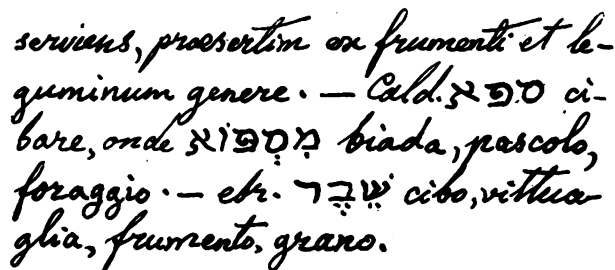 serviens, praesertim ex frumenti et le-
guminum genere. — Cald. סְפָא ci-
bare, onde מִסְפּוֹא biada, pascolo,
foraggio. — ebr. שֶׁבֶר cibo, vittua
glia, frumento, grano.